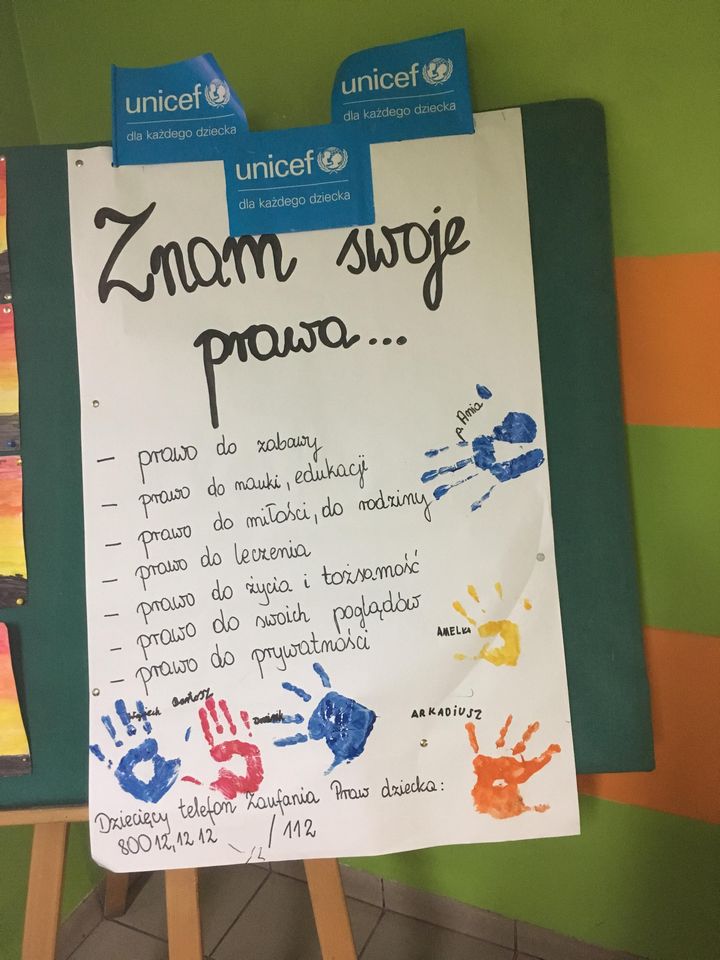 unicef
dla każdego dziecka
unicef
dla każdego dziecka
unicef
dla każdego dziecka
Znam swoje
prawa...
– prawo do zabawy
– prawo do nauki, edukacji
– prawo do miłości, do rodziny
– prawo do leczenia
– prawo do życia i tożsamość
– prawo do swoich poglądów
– prawo do prywatności
p. Ania
AMELKA
Wojciech
Bartosz
Dominik
ARKADIUSZ
Dziecięcy telefon Zaufania Praw dziecka:
800 12, 12 12 / 112